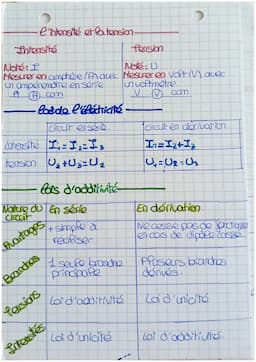 L'intensité et la tension
Intensité
Tension
Noté: I
Mesurer en ampère (A) avec
un ampèremètre en série
A com
Noté: U
Mesurer en volt (V) avec
un voltmètre
V com
Loi de l'éléctricité
circuit en série
circuit en dérivation
intensité
I₁=I₂=I₃
I₁=I₂+I₃
tension
U₂+U₃=U₂
U₁=U₂=U₃
Lois d'additivité
Nature du circuit
En série
En dérivation
Avantages
+ simple à
réaliser
Ne cesse pas de fonctionner
en cas de dipôle cassé
Branches
1 seule branche
principale
Plusieurs branches
dérivés.
Tensions
Loi d'additivité
Loi d'unicité
Intensités
Loi d'unicité
Loi d'additivité